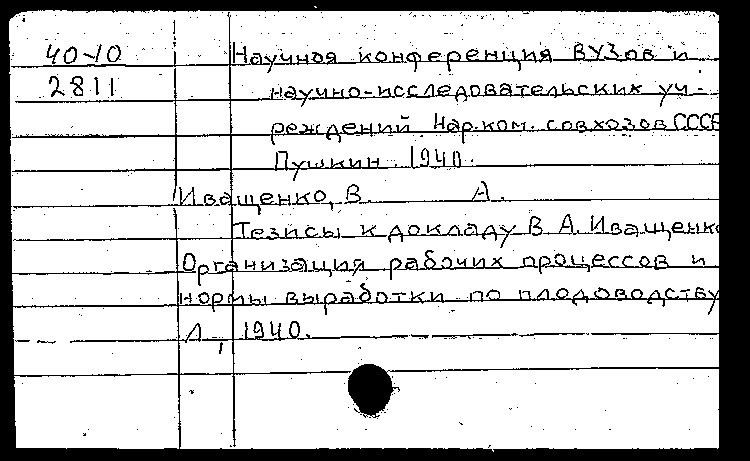 40-10 Научная конференция ВУЗов и
2811 научно-исследовательских уч-
реждений Нар.ком. совхозов СССР
Пушкин. 1940.
Иващенко, В. А.
Тезисы к докладу В. А. Иващенко
Организация рабочих процессов и
нормы выработки по плодоводству
Л., 1940.